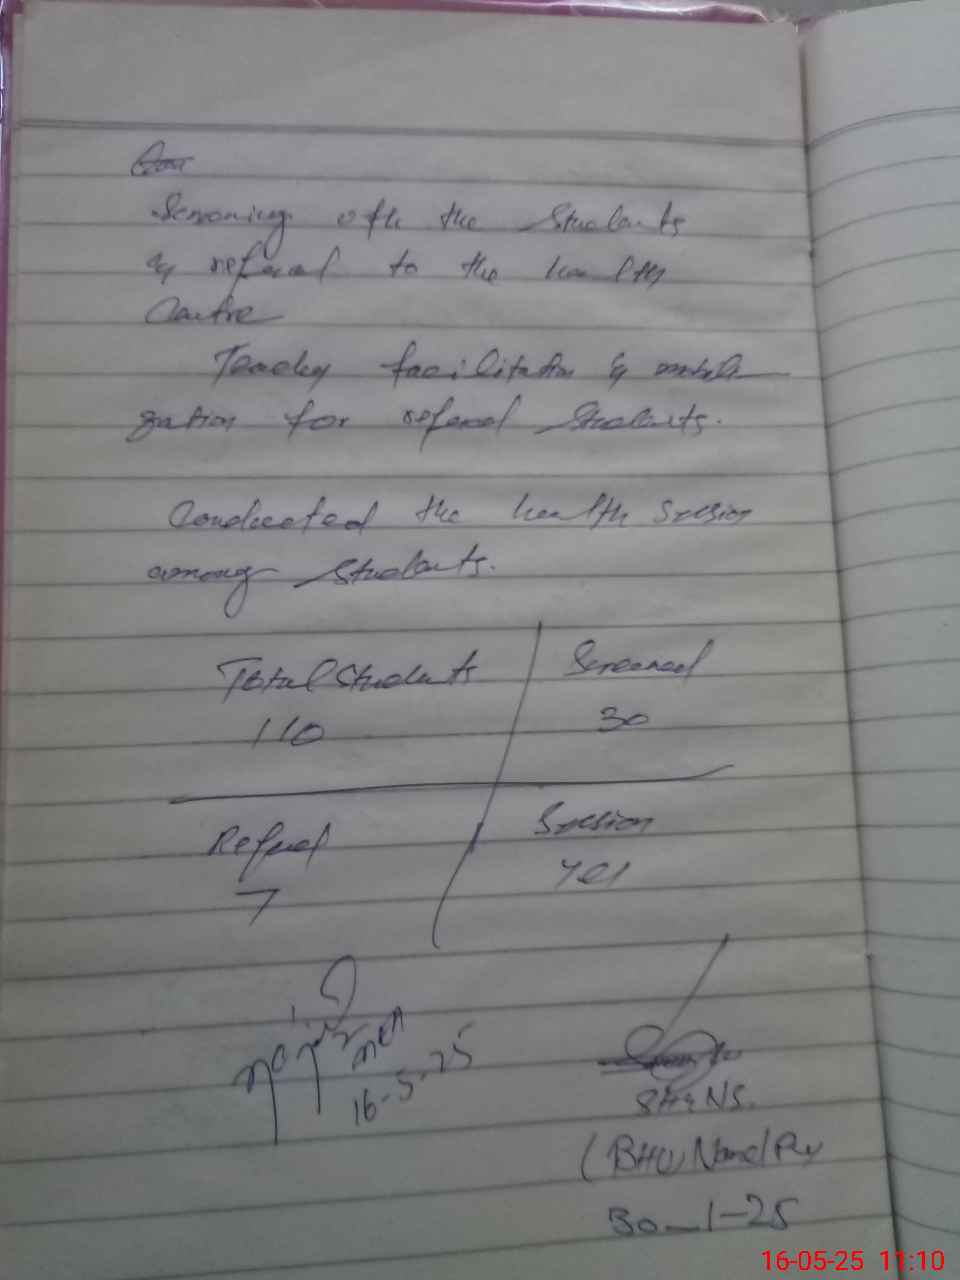 Screening ofh the Students
& referal to the health
Centre
Teacher facilitation & mobili
zation for refered Students.
Conducted the health Session
among Students.
Total Students
110
Screened
30
Refered
7
Session
Yes
16-5-25
SH&NS.
(BHU Nand Pur
30-1-25
16-05-25 11:10